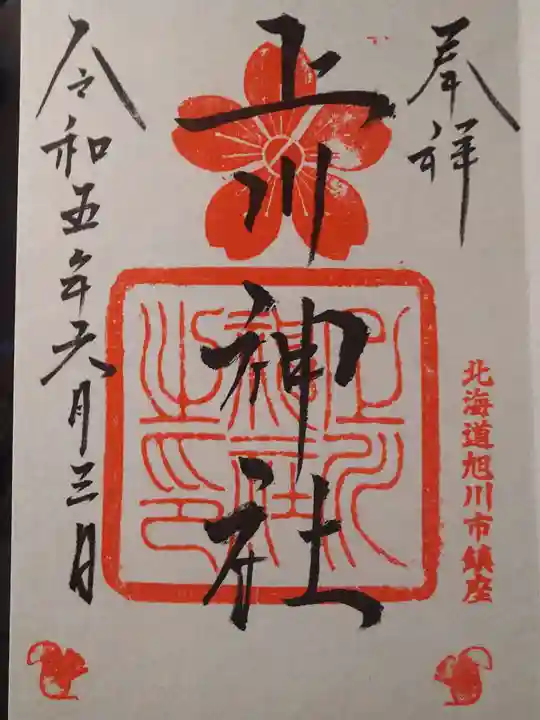 奉拝
北海道旭川市鎮座
上川神社
上川神社之印
令和五年六月三日